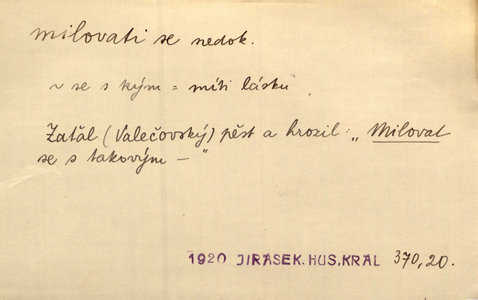 milovati se nedok.
~ se s kým = míti lásku
Zaťal (Valečovský) pěst a hrozil: „Milovat
se s takovým — "
1920 JIRASEK. HUS. KRAL 370,20.